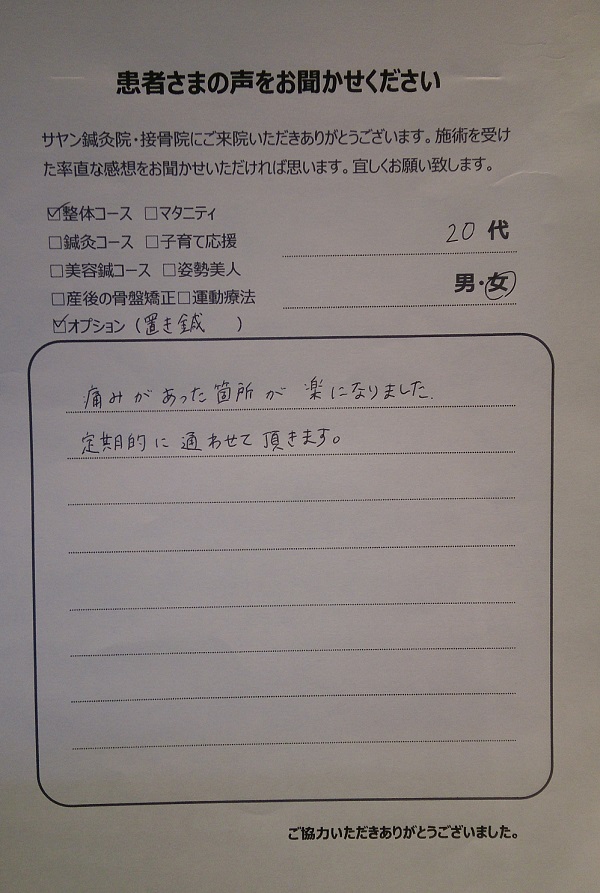 患者さまの声をお聞かせください
サヤン鍼灸院・接骨院にご来院いただきありがとうございます。施術を受け
た率直な感想をお聞かせいただければ思います。宜しくお願い致します。
☑整体コース □マタニティ
□鍼灸コース □子育て応援
20 代
□美容鍼コース □姿勢美人
男・女
□産後の骨盤矯正□運動療法
☑オプション（置き鍼 ）
痛みがあった箇所が楽になりました.
定期的に通わせて頂きます。
ご協力いただきありがとうございました。